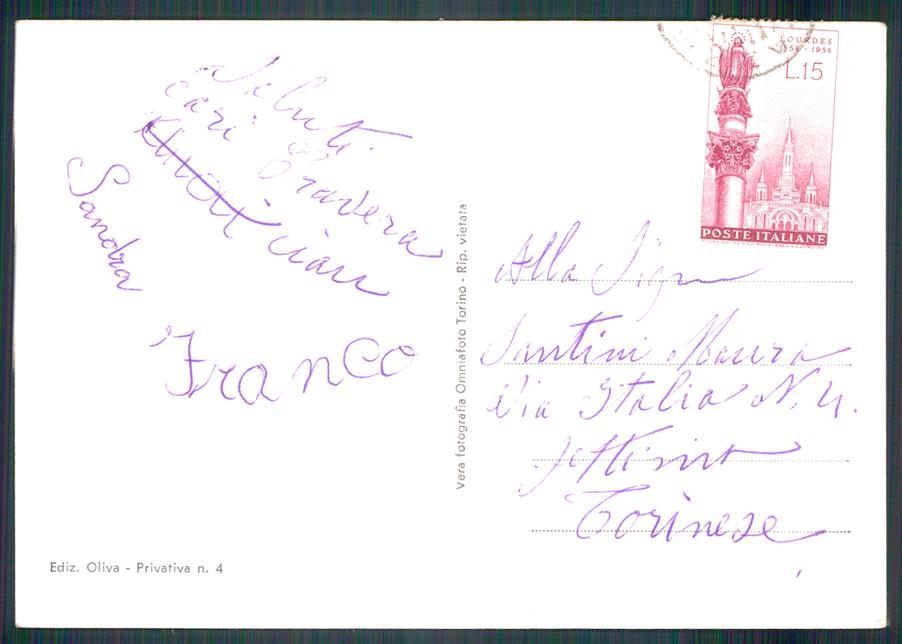 Saluti
cari
Sandra
Franco
Ediz. Oliva - Privativa n. 4
Vera fotografia Omniafoto Torino - Rip. vietata
LOURDES
1858 - 1958
L.15
POSTE ITALIANE
Alla Sign
Santini Maura
Via Italia N. 4.
Settimo
Torinese